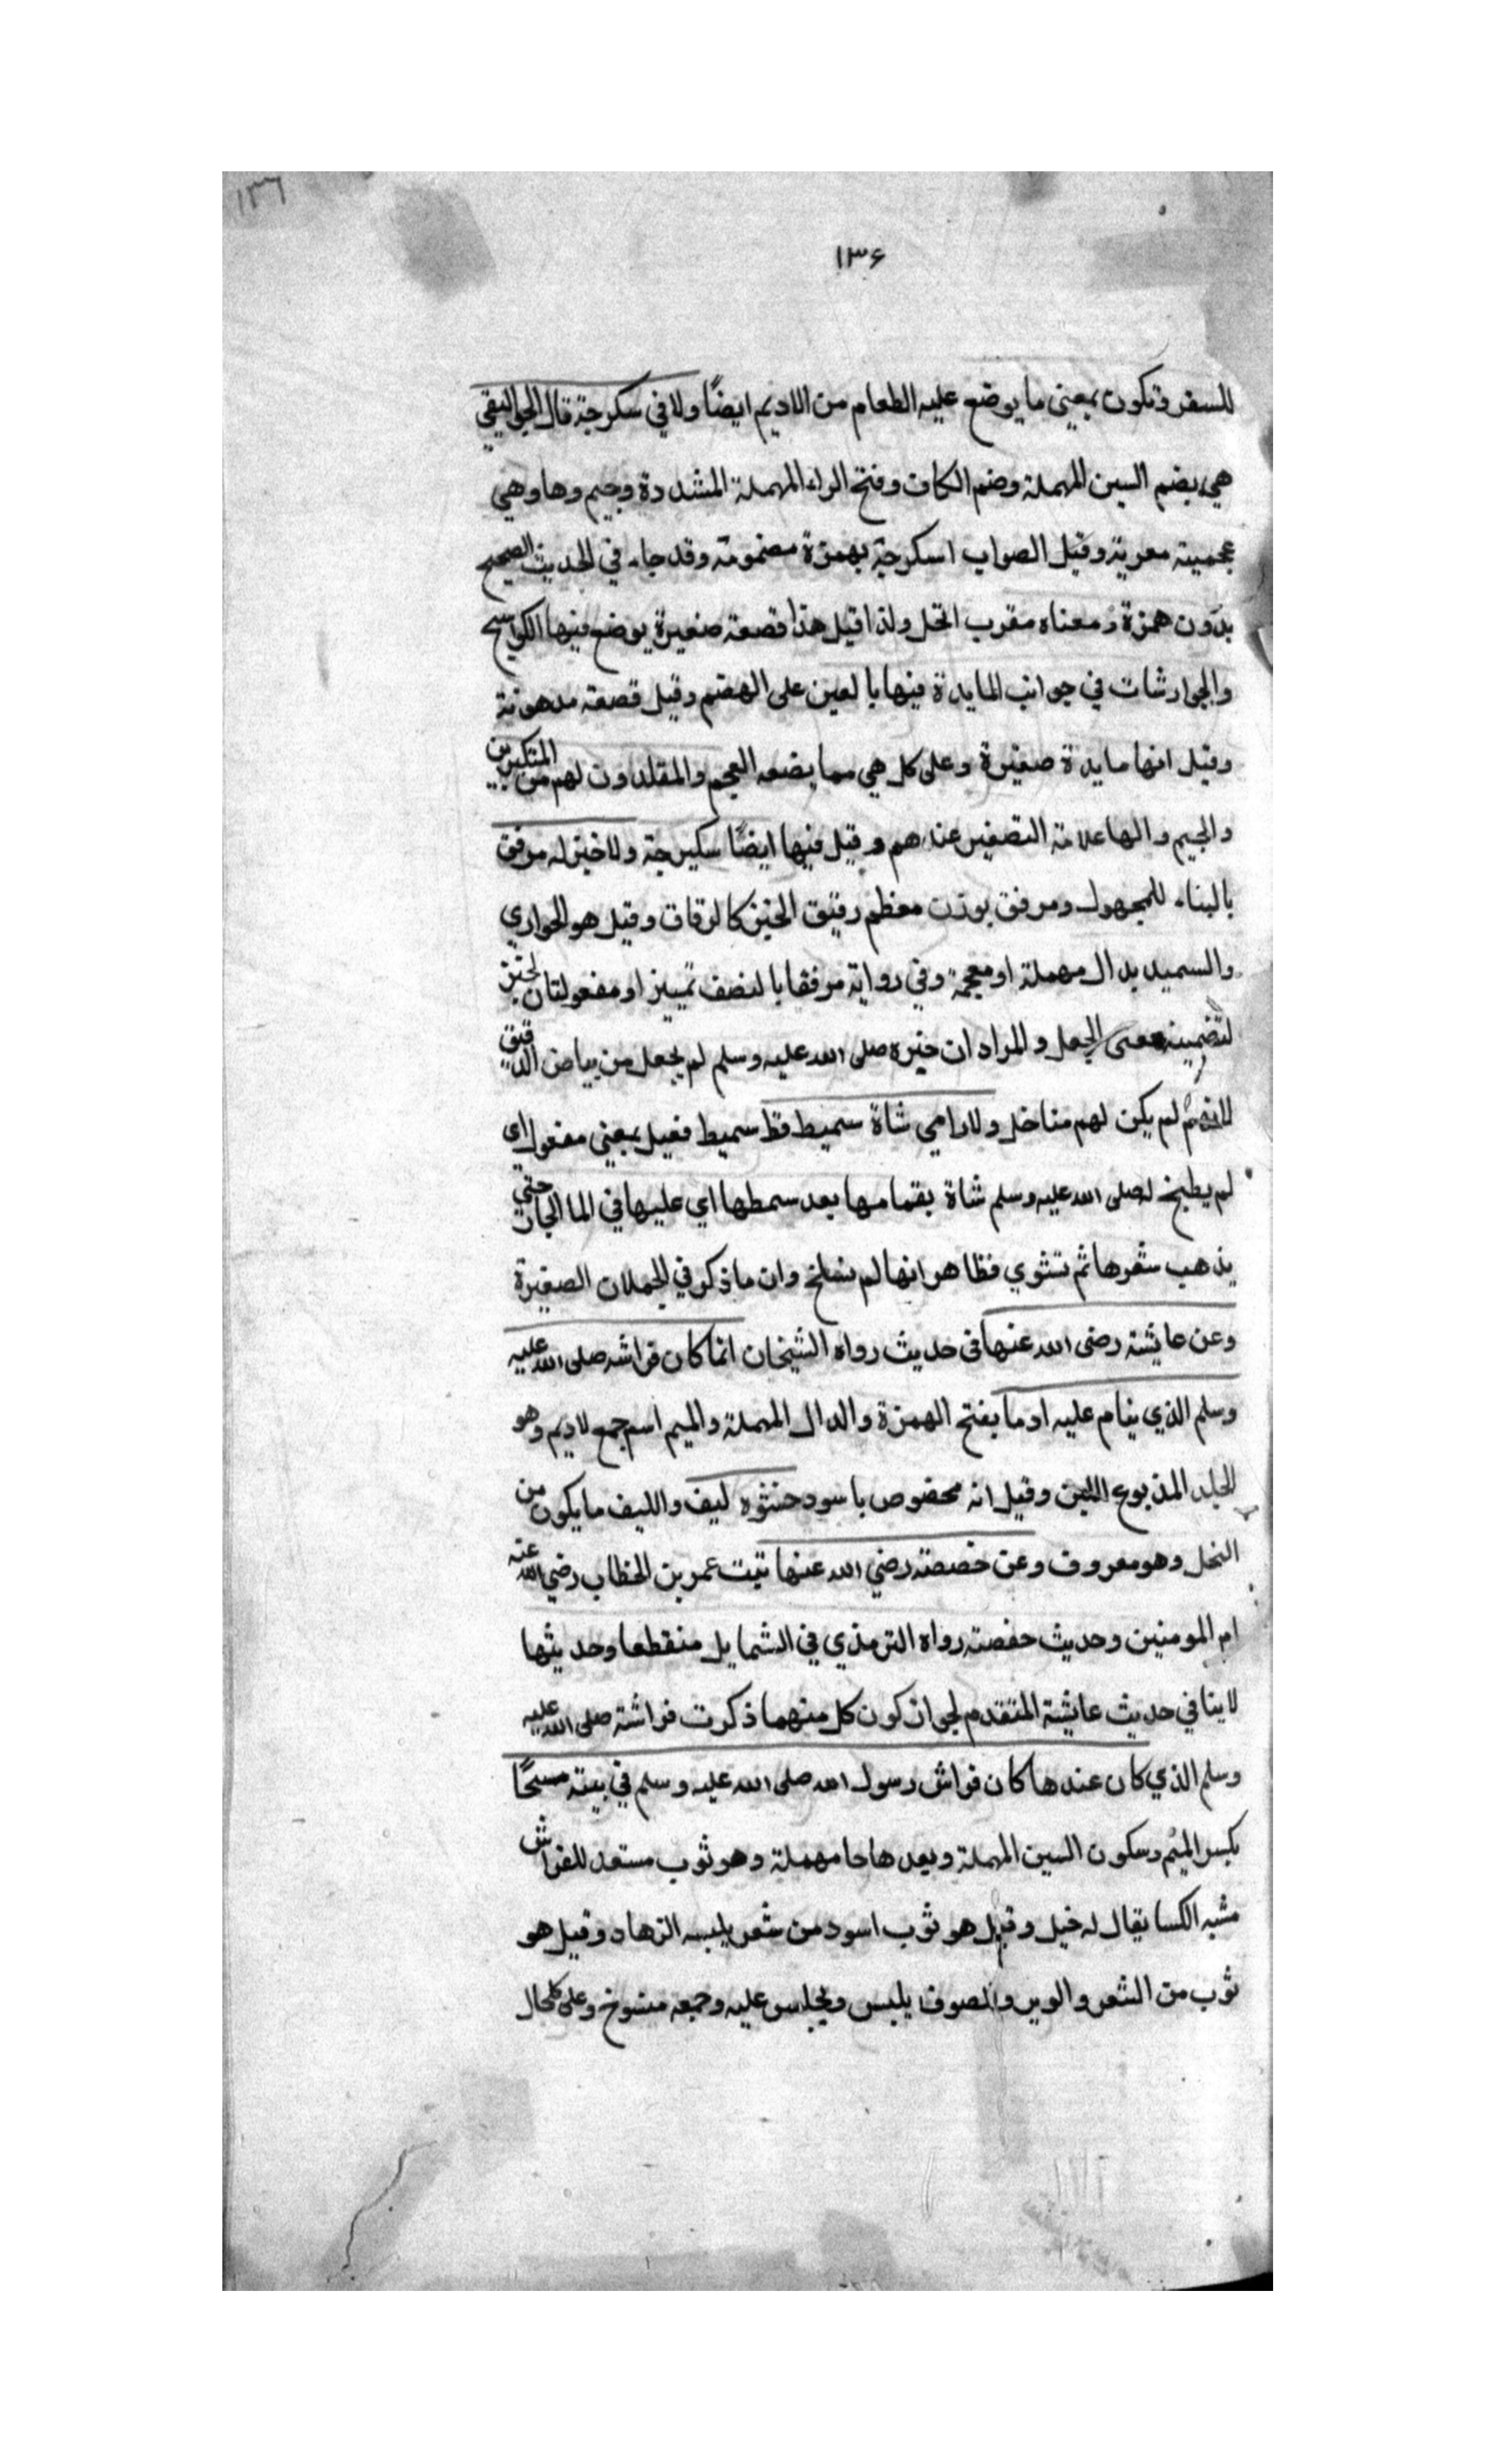 ١٣٦
١٣۶
للسفر فتكون بمعني ما يوضع عليه الطعام من الاديم ايضًا ولا في سكرجة قال الجواليقي
هي بضم السين المهملة وضم الكاف وفتح الراء المهملة المشددة وجيم وها وهي
عجمية معربة وقيل الصواب اسكرجة بهمزة مضمومة وقد جاء في الحديث الصحيح
بدون همزة ومعناه مقرب الخل ولذا قيل هذا قصعة صغيرة يوضع فيها الكواسخ
والجوارشات في جوانب المايدة فيها بالعين على الهضم وقيل قصعة مدهونة
وقيل انها مايدة صغيرة وعلى كل هي مما يضعه العجم والمقلدون لهم من المتكبرين
والجيم والها علامة التصغير عندهم وقيل فيها ايضًا سكيرجة ولا خبز له مرفق
بالبناء للمجهول ومرفق بوزن معظم رقيق الخبز كالرقاق وقيل هو الحواري
والسميد بدال مهملة او معجمة وفي رواية مرفقا بالنصف تمييز او مفعول ثان لخبز
لتضمينه معنى الجعل والمراد ان خبزه صلى الله عليه وسلم لم يجعل من بياض الدقيق
لانهم لم يكن لهم مناخل ولا رامي شاة سميط قط سميط فعيل بمعني مفعول اي
لم يطبخ له صلى الله عليه وسلم شاة بقمامها بعد سمطها اي عليها في الما الحار حتي
يذهب شعرها ثم تشوي فظاهر انها لم تسلخ وان ما ذكر في الحملان الصغيرة
وعن عايشة رضى الله عنها في حديث رواه الشيخان انما كان فراشه صلى الله عليه
وسلم الذي ينام عليه ادما بفتح الهمزة والدال المهملة والميم اسم جمع لاديم وهو
الجلد المدبوغ اللين وقيل انه مخصوص باسود حشوه ليف والليف ما يكون من
النخل وهو معروف وعن حفصة رضي الله عنها بنت عمر بن الخطاب رضي الله عنه
ام المومنين وحديث حفصة رواه الترمذي في الشمايل منقطعا وحديثها
لا ينافي حديث عايشة المتقدم لجواز كون كل منهما ذكرت فراشة صلى الله عليه
وسلم الذي كان عندها كان فراش رسول الله صلى الله عليه وسلم في بيته مسحًا
بكسر الميم وسكون السين المهملة وبعدها حا مهملة وهو ثوب مستعد للفراش
مشبه الكسا يقال له خيل وقيل هو ثوب اسود من شعر يلبسه الزهاد وقيل هو
ثوب من الشعر والوبر والصوف يلبس ويجلس عليه وجمعه مسوخ وعلى كل حال